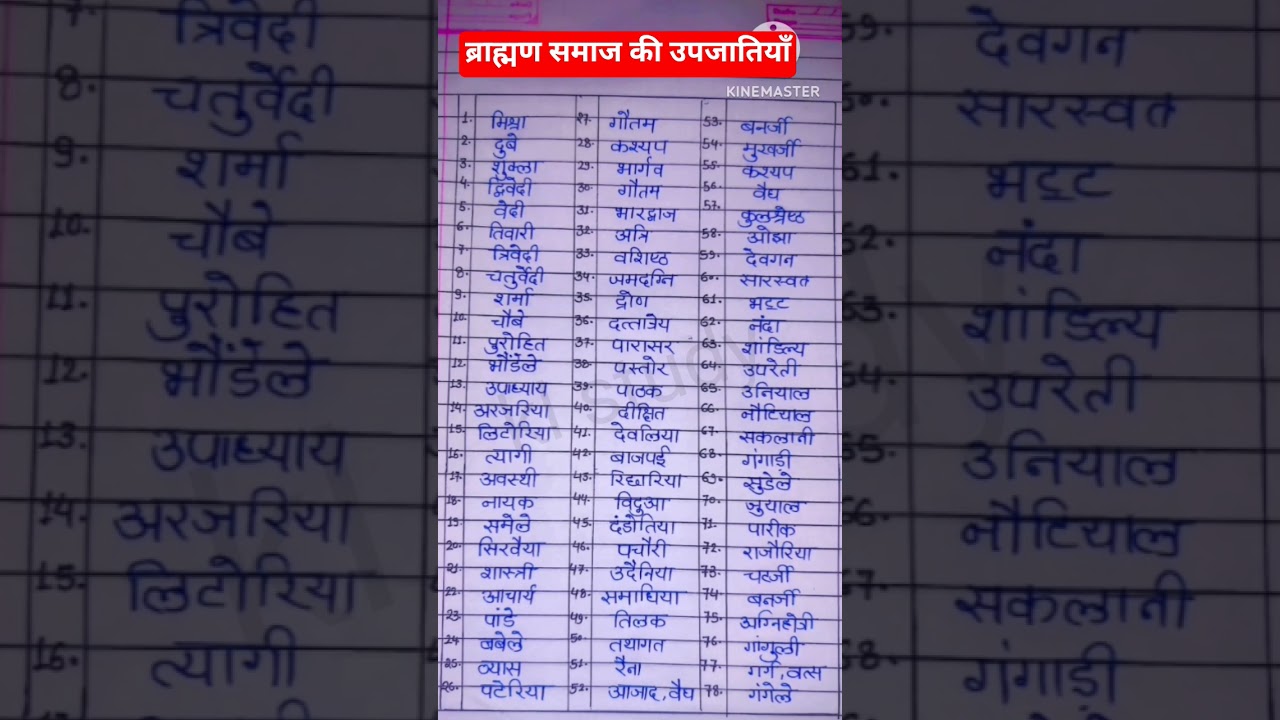 ब्राह्मण समाज की उपजातियाँ
KINEMASTER
1. मिश्रा
2. दुबे
3. शुक्ला
4. द्विवेदी
5. वेदी
6. तिवारी
7. त्रिवेदी
8. चतुर्वेदी
9. शर्मा
10. चौबे
11. पुरोहित
12. भौंडेले
13. उपाध्याय
14. अरजरिया
15. लिटोरिया
16. त्यागी
17. अवस्थी
18. नायक
19. समेले
20. सिरवैया
21. शास्त्री
22. आचार्य
23. पांडे
24 बबेले
25. व्यास
26. पटेरिया
27. गौतम
28. कश्यप
29. भार्गव
30. गौतम
31. भारद्वाज
32. अत्रि
33. वशिष्ठ
34. जमदग्नि
35. द्रोण
36. दत्तात्रेय
37. पारासर
38. पस्तोर
39. पाठक
40. दीक्षित
41. देवलिया
42. बाजपई
43. रिछारिया
44. विदूआ
45. दंडोतिया
46. पचौरी
47. उदैनिया
48. समाधिया
49. तिलक
50. तथागत
51. रैना
52. आजाद, वैध
53. बनर्जी
54. मुखर्जी
55. कश्यप
56. वैध
57. कुलश्रेष्ठ
58. ओझा
59. देवगन
60. सारस्वत
61. भट्ट
62. नंदा
63. शांडिल्य
64. उपरेती
65. उनियाल
66. नौटियाल
67. सकलानी
68. गंगाड़ी
69. सुडेले
70. जुयाल
71. पारीक
72. राजौरिया
73. चटर्जी
74. बनर्जी
75. अग्निहोत्री
76. गांगुली
77. गर्ग, वत्स
78. गंगेले